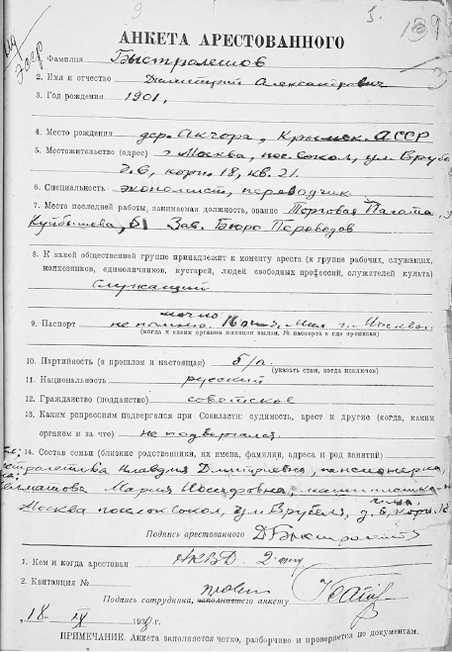 5.
АНКЕТА АРЕСТОВАННОГО
1. Фамилия Быстролетов
2. Имя и отчество Димитрий Александрович
3. Год рождения 1901,
4. Место рождения дер. Акчора, Крымск. АССР
5. Местожительство (адрес) г. Москва, пос. Сокол, ул. Врубе
д. 6, корп. 18, кв. 21.
6. Специальность экономист, переводчик
7. Место последней работы, занимаемая должность, звание Торговая Палата,
Куйбышева, 6/ Зав. Бюро Переводов
8. К какой общественной группе принадлежит к моменту ареста (к группе рабочих, служащих,
колхозников, единоличников, кустарей, людей свободных профессий, служителей культа)
Служащий
точно
9. Паспорт не помню. Мил. г. Москвы
(когда и каким органом выдан, № паспорта и где прописан)
10. Партийность (в прошлом и настоящая) б/п.
(указать стаж, когда исключен)
11. Национальность русский
12. Гражданство (подданство) советское
13. Каким репрессиям подвергался при Соввласти: судимость, арест и другие (когда, каким
органом и за что) не подвергался.
14. Состав семьи (близкие родственники, их имена, фамилии, адреса и род занятий)
Клавдия Дмитриевна, пенсионерка,
Мария Иосифовна, машинистка
Москва поселок Сокол, ул. Врубеля, д. 6, корп. 18
Подпись арестованного Д Быстролетов
1. Кем и когда арестован НКВД
2. Квитанция №
Подпись сотрудника, заполнившего анкету
„18“ IX 1938 г.
ПРИМЕЧАНИЕ. Анкета заполняется четко, разборчиво и проверяется по документам.